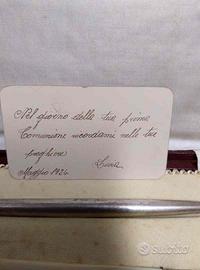 Nel giorno della tua prima
Comunione ricordami nelle tue
preghiere
Livia
Maggio 1926
subito